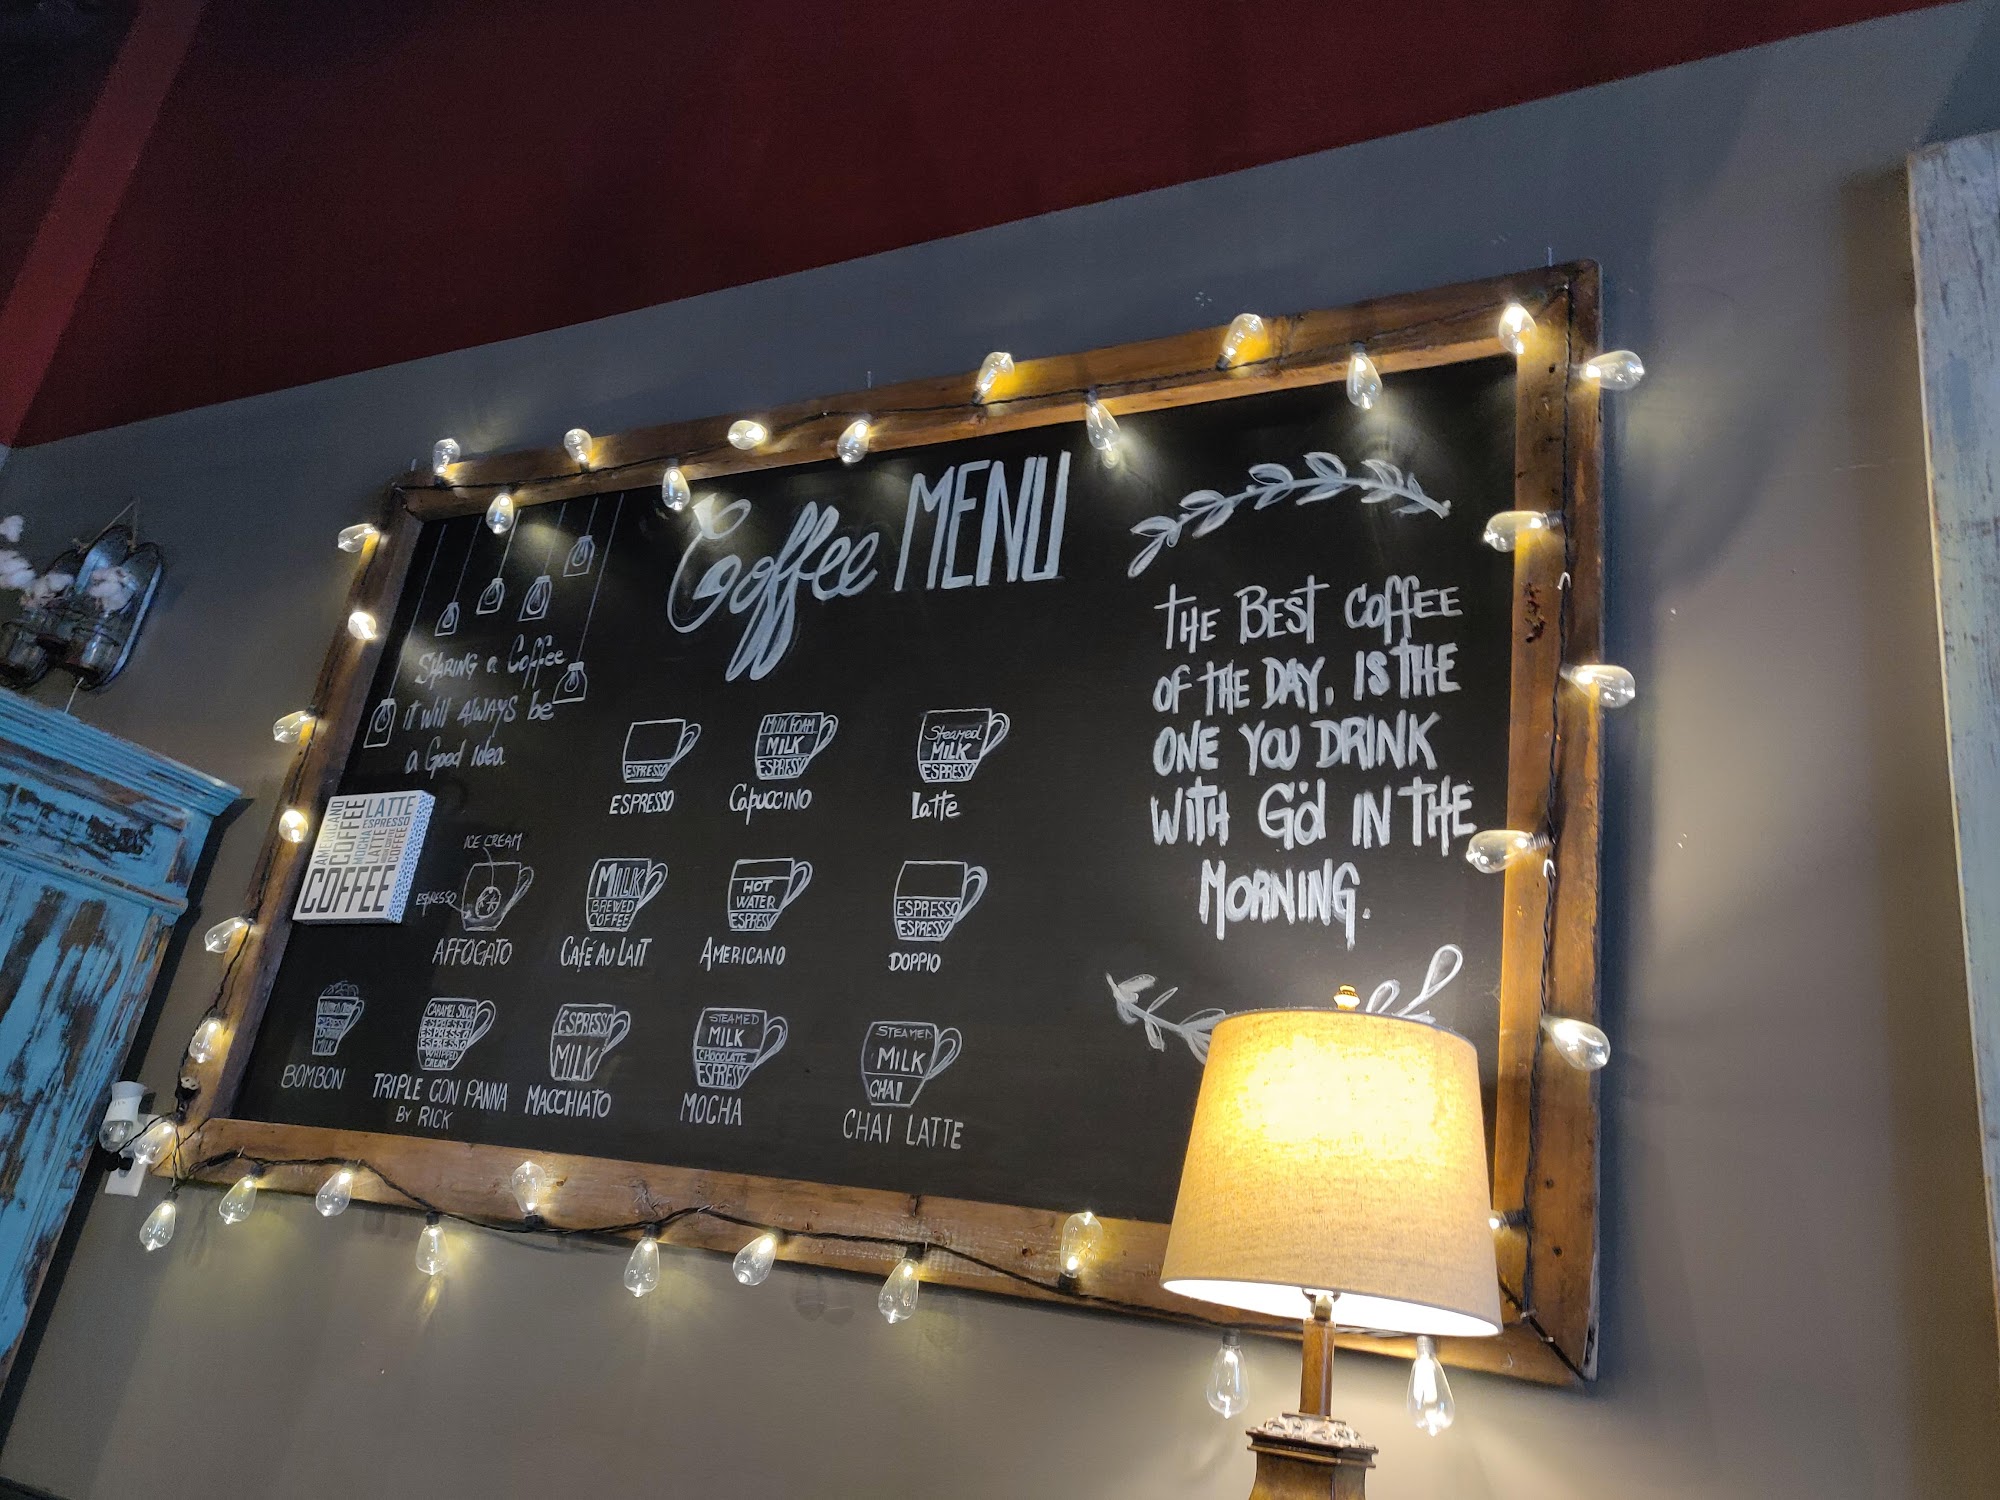 Coffee MENU
SHARING a Coffee
it will ALWAYS be
a Good Idea
THE BEST COFFEE
OF THE DAY, IS THE
ONE YOU DRINK
WITH G'd IN THE
MORNING.
ESPRESSO
ESPRESSO
MILK FOAM
MILK
ESPRESSO
CAPUCCINO
Steamed
MILK
ESPRESSO
Latte
AMERICANO
COFFEE
MOCHA
LATTE
LATTE
ESPRESSO
COFFEE
COFFEE
ICE CREAM
ESPRESSO
AFFOGATO
MILK
BREWED
COFFEE
Café AU LAIT
HOT
WATER
ESPRESSO
AMERICANO
ESPRESSO
ESPRESSO
DOPPIO
ESPRESSO
MILK
BOMBON
CARAMEL SAUCE
ESPRESSO
ESPRESSO
ESPRESSO
WHIPPED
CREAM
TRIPLE CON PANNA
BY RICK
ESPRESSO
MILK
MACCHIATO
STEAMED
MILK
CHOCOLATE
ESPRESSO
MOCHA
STEAMED
MILK
CHAI
CHAI LATTE